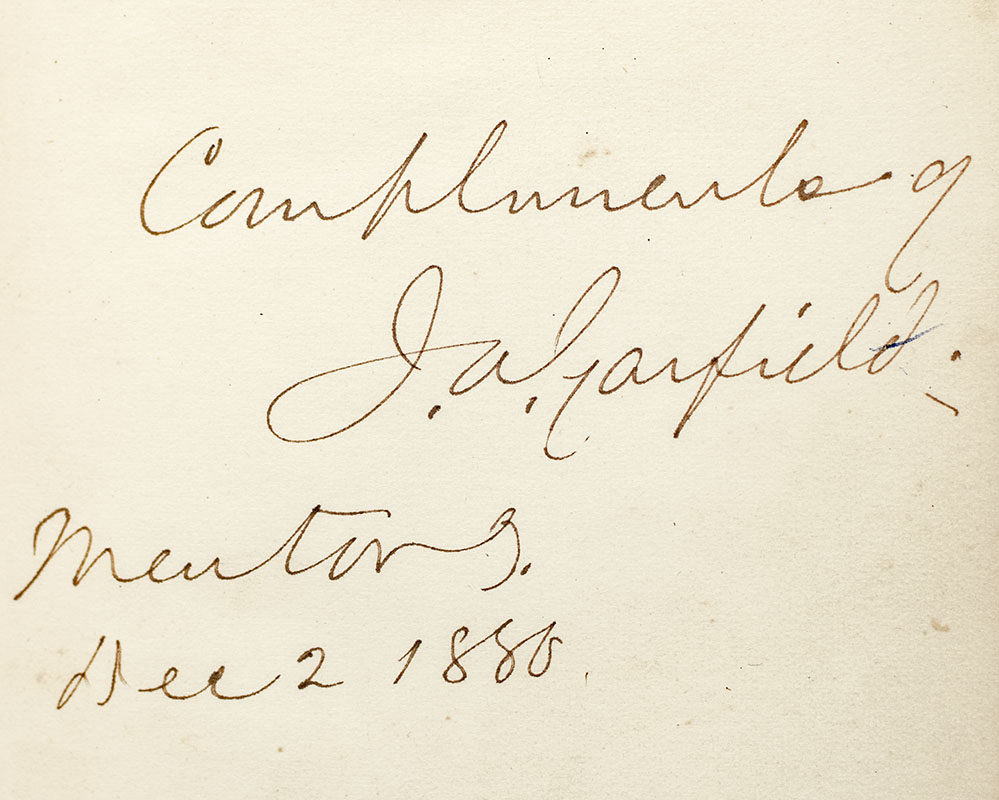 Compliments of
J. A. Garfield.
Mentor O.
Dec 2 1880.